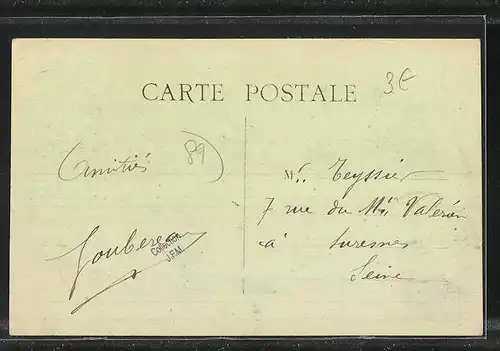 CARTE POSTALE
3€
Amitiés
89
Mr. Teyssier
7 rue du Mt Valérien
à Suresnes
Seine
Collection
J.F.M.